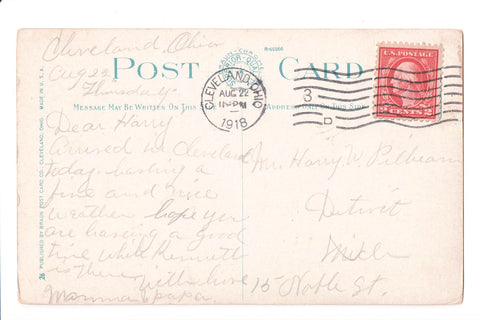 Cleveland, Ohio
Aug 22
Thursday
R-66006
POST CARD
MESSAGE MAY BE WRITTEN ON THIS SIDE
ADDRESS ON THIS SIDE
CLEVELAND, OHIO
AUG 22
PM
1918
3
D
U.S. POSTAGE
2 CENTS 2
Dear Harry
Arrived in Cleveland
today. having a
fine and nice
weather hope you
are having a good
time while Kenneth
is there with love
Mamma & papa.
Mr. Harry W. Pilbeam
Detroit
Mich
15 Noble St.
MADE IN U.S.A.
26 PUBLISHED BY BRAUN POST CARD CO., CLEVELAND, OHIO.